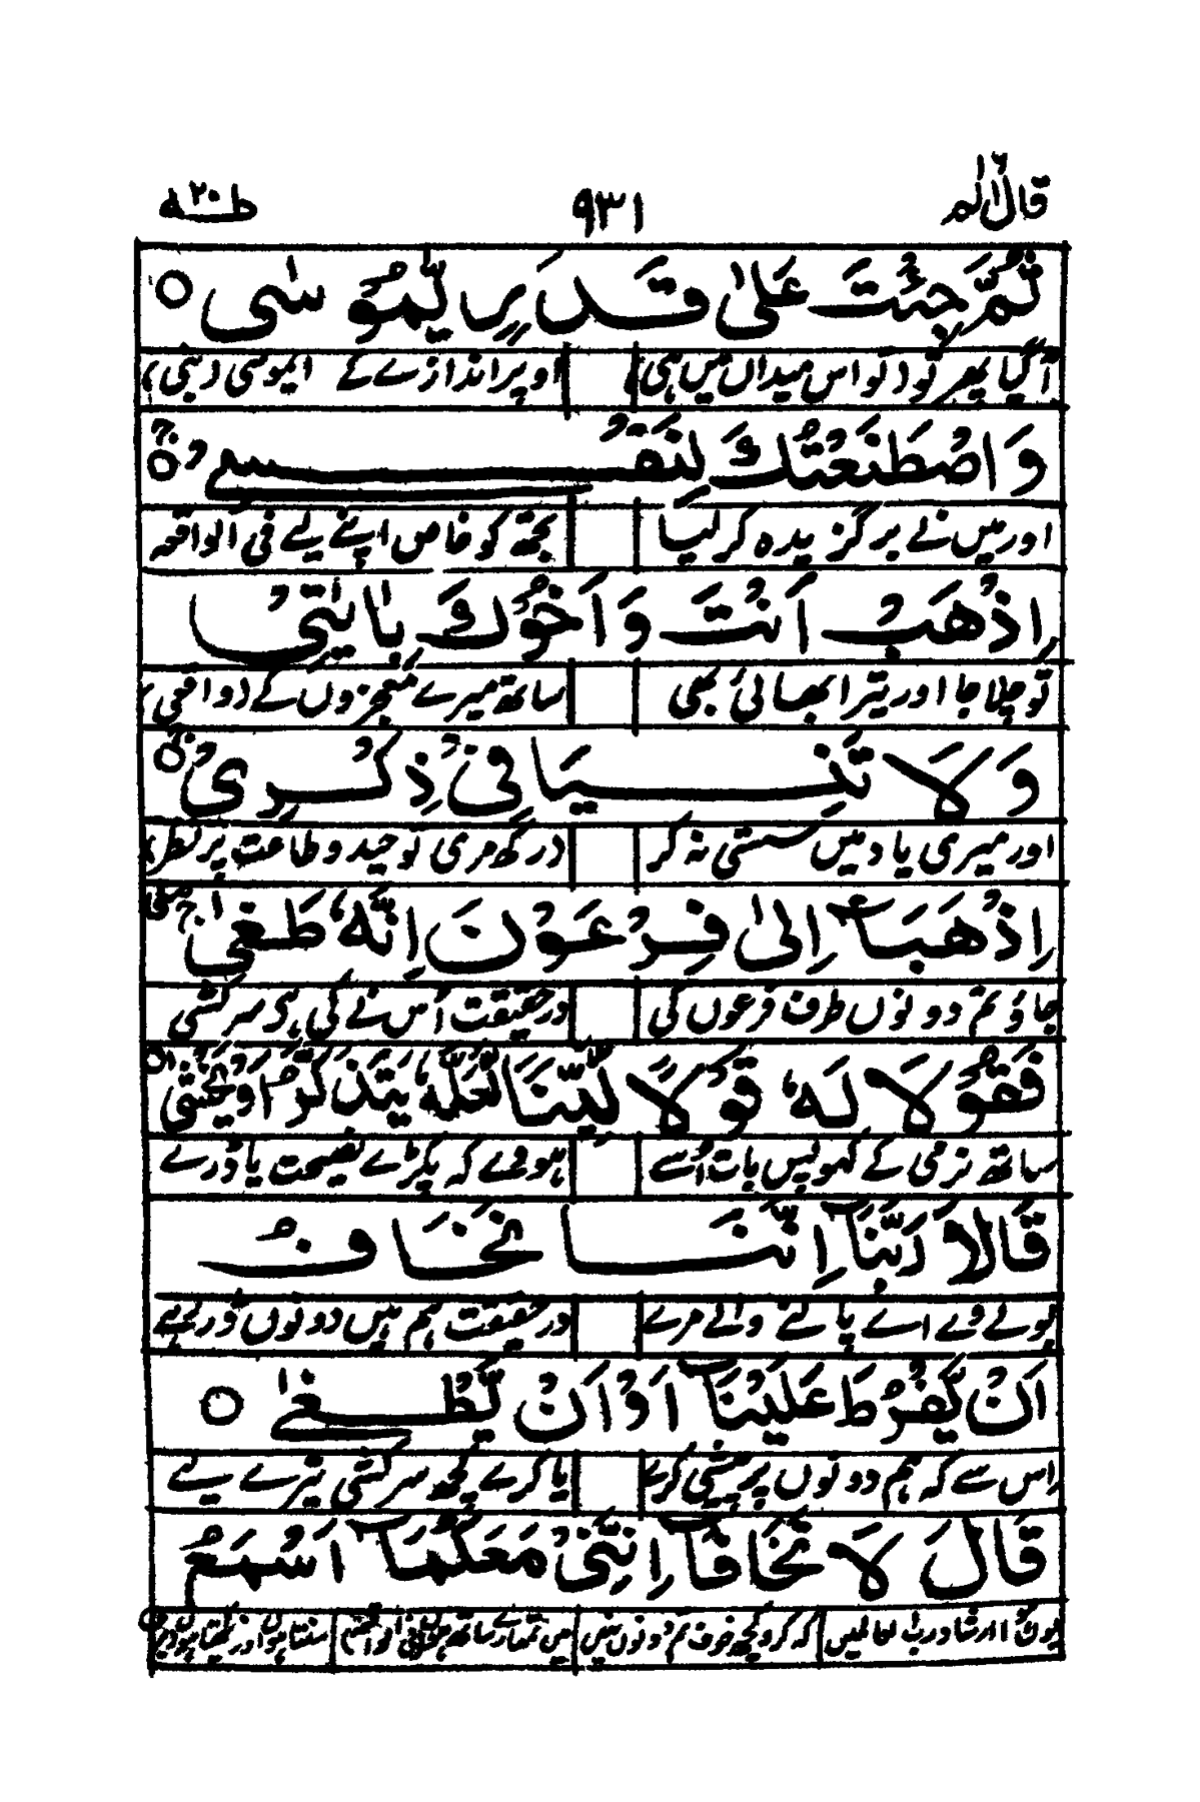 قال الم ۱۶ ۹۳۱ طٰهٰ ۲۰
ثُمَّ جِئْتَ عَلٰى قَدَرٍ يّٰمُوْسٰى ○
آ گیا پھر تو (تو اس میداں میں ہی) اوپر اندازے کے ایموسی (نبی)
وَاصْطَنَعْتُكَ لِنَفْسِيْ ۚ○
اور میں نے برگزیدہ کر لیا تجھ کو خاص اپنے لیے فی الواقعہ
اِذْهَبْ اَنْتَ وَاَخُوْكَ بِاٰيٰتِيْ
تو چلا جا اور تیرا بھائی بھی ساتھ میرے معجزوں کے (واقعی)
وَلَا تَنِيَا فِيْ ذِكْرِيْ ۚ○
اور میری یاد میں سستی نہ کر (رکھ مری توحید و طاعت پر نظر)
اِذْهَبَآ اِلٰى فِرْعَوْنَ اِنَّهٗ طَغٰى ۚۖ
جاؤ تم دونوں طرف فرعوں کی درحقیقت اُس نے کی ہے سرکشی
فَقُوْلَا لَهٗ قَوْلًا لَّيِّنًا لَّعَلَّهٗ يَتَذَكَّرُ اَوْ يَخْشٰى ○
ساتھ نرمی کے کہو پس بات اُسے ہووے کہ پکڑے نصیحت یا ڈرے
قَالَا رَبَّنَآ اِنَّنَا نَخَافُ
بولے وے اے پالنے والے مرے درحقیقت ہم ہیں دونوں ڈر رہے
اَنْ يَّفْرُطَ عَلَيْنَآ اَوْ اَنْ يَّطْغٰى ○
اس سے کہ ہم دونوں پر پیشی کرے یا کرے کچھ سرکشی تیرے لیے
قَالَ لَا تَخَافَآ اِنَّنِيْ مَعَكُمَآ اَسْمَعُ
ارشاد رب العالمیں کہ کرو کچھ خوف تم دونوں نہیں میں تمھارے ساتھ ہوں سنتا ہوں اور